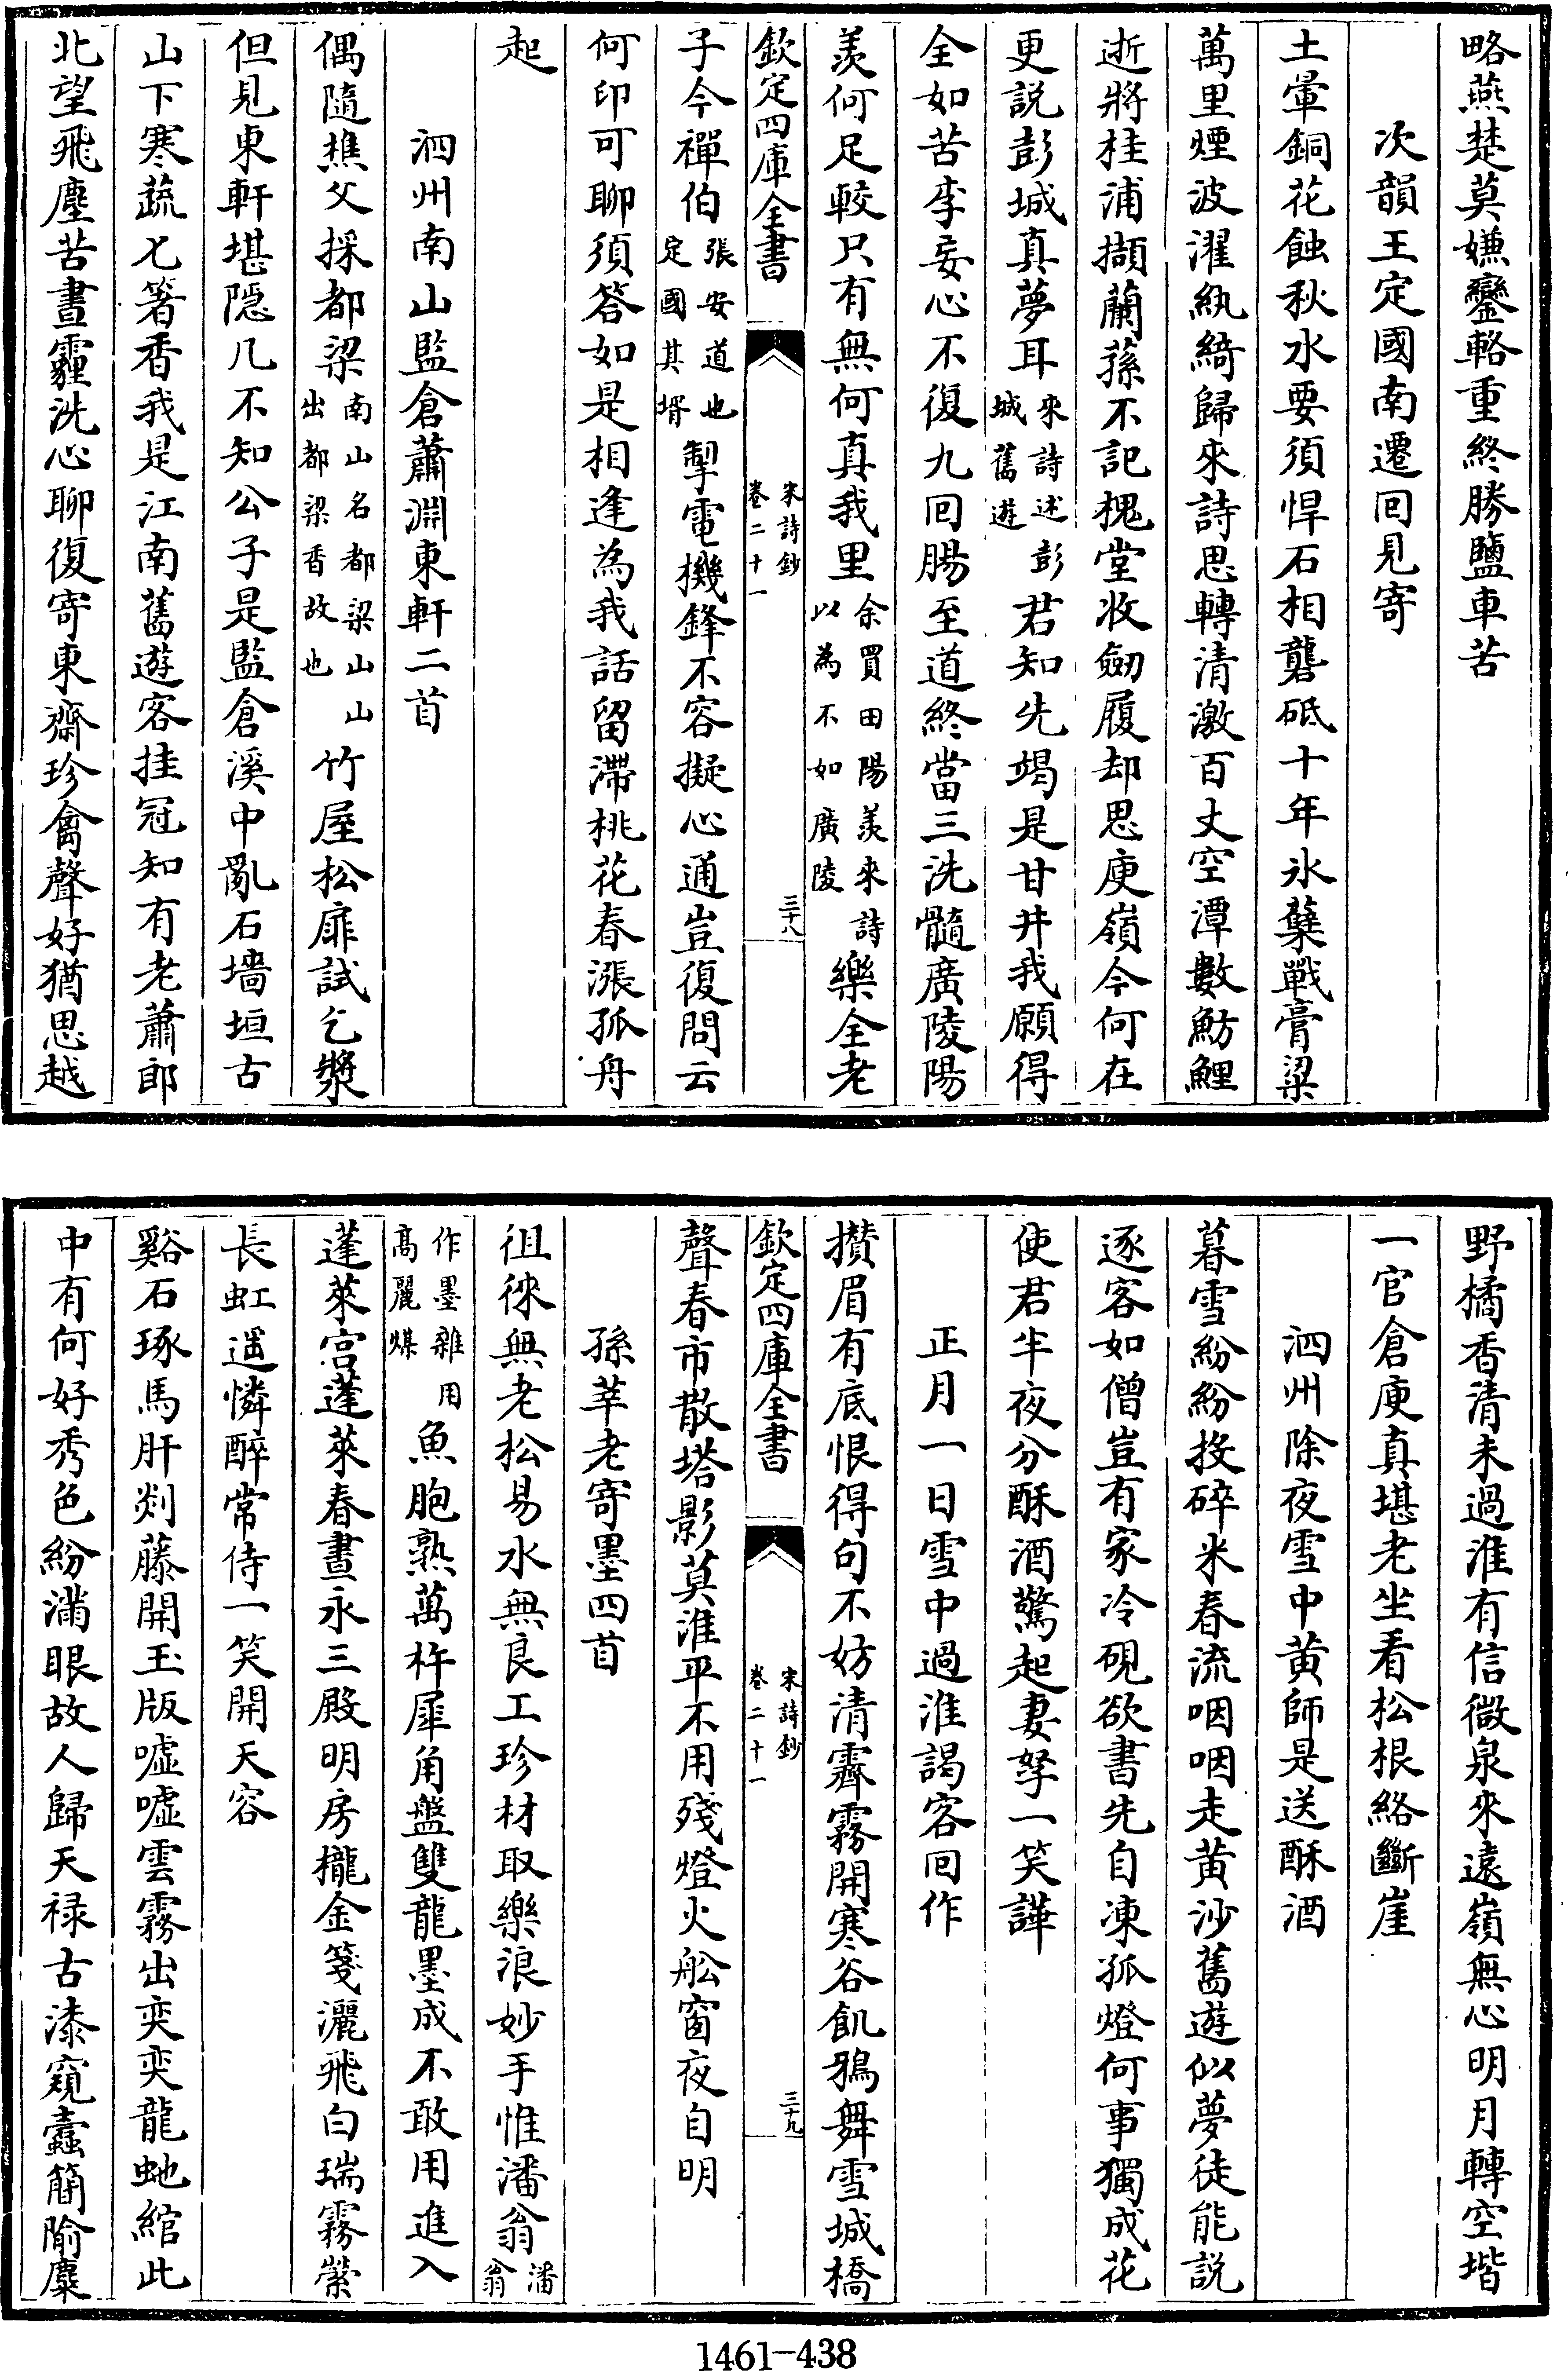 略燕楚莫嫌鑾輅重終勝鹽車苦
次韻王定國南遷回見寄
土暈銅花蝕秋水要須悍石相礱砥十年氷蘗戰膏粱
萬里煙波濯紈綺歸來詩思轉清激百丈空潭數魴鯉
逝將桂浦擷蘭蓀不記槐堂收劒履却思庾嶺今何在
更説彭城真夢耳來詩述彭城舊遊君知先竭是甘井我願得
全如苦李妄心不復九回腸至道終當三洗髓廣陵陽
羨何足較只有無何真我里余買田陽羨來詩以為不如廣陵樂全老
欽定四庫全書 宋詩鈔 卷二十一 三十八
子今禪伯張安道也定國其壻掣電機鋒不容擬心通豈復問云
何印可聊須答如是相逢為我話留滯桃花春漲孤舟
起
泗州南山監倉蕭淵東軒二首
偶隨樵父採都梁南山名都梁山山出都梁香故也竹屋松扉試乞漿
但見東軒堪隠几不知公子是監倉溪中亂石墻垣古
山下寒蔬匕箸香我是江南舊遊客挂冠知有老蕭郎
北望飛塵苦晝霾洗心聊復寄東齋珍禽聲好猶思越
野橘香清未過淮有信微泉來遠嶺無心明月轉空堦
一官倉庾真堪老坐看松根絡斷崖
泗州除夜雪中黄師是送酥酒
暮雪紛紛投碎米春流咽咽走黄沙舊遊似夢徒能説
逐客如僧豈有家冷硯欲書先自凍孤燈何事獨成花
使君半夜分酥酒驚起妻孥一笑譁
正月一日雪中過淮謁客回作
攢眉有底恨得句不妨清霽霧開寒谷飢鴉舞雪城橋
欽定四庫全書 宋詩鈔 卷二十一 三十九
聲春市散塔影莫淮平不用殘燈火舩窗夜自明
孫莘老寄墨四首
徂徠無老松易水無良工珍材取樂浪妙手惟潘翁潘翁
作墨雜用高麗煤魚胞熟萬杵犀角盤雙龍墨成不敢用進入
蓬萊宫蓬萊春晝永三殿明房櫳金箋灑飛白瑞霧縈
長虹遥憐醉常侍一笑開天容
谿石琢馬肝剡藤開玉版噓噓雲霧出奕奕龍虵綰此
中有何好秀色紛滿眼故人歸天禄古漆窺蠹簡隃麋
1461-438